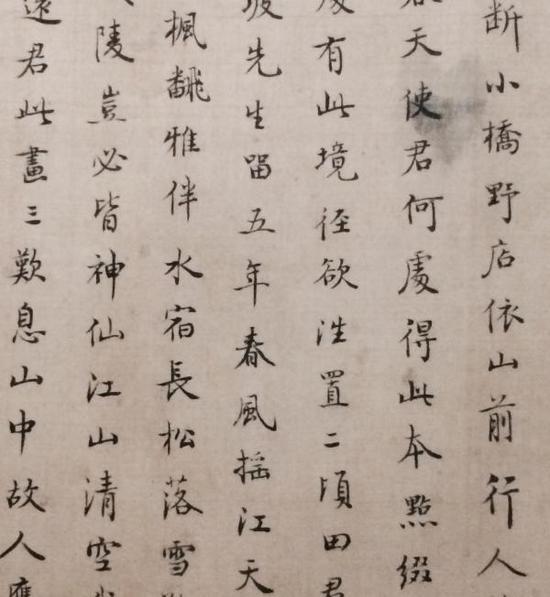 断小橋野店依山前行人
天使君何處得此本點綴
有此境徑欲往置二頃田君
先生留五年春風摇江天
楓翻雅伴水宿長松落雪
陵豈必皆神仙江山清空
還君此畫三歎息山中故人應